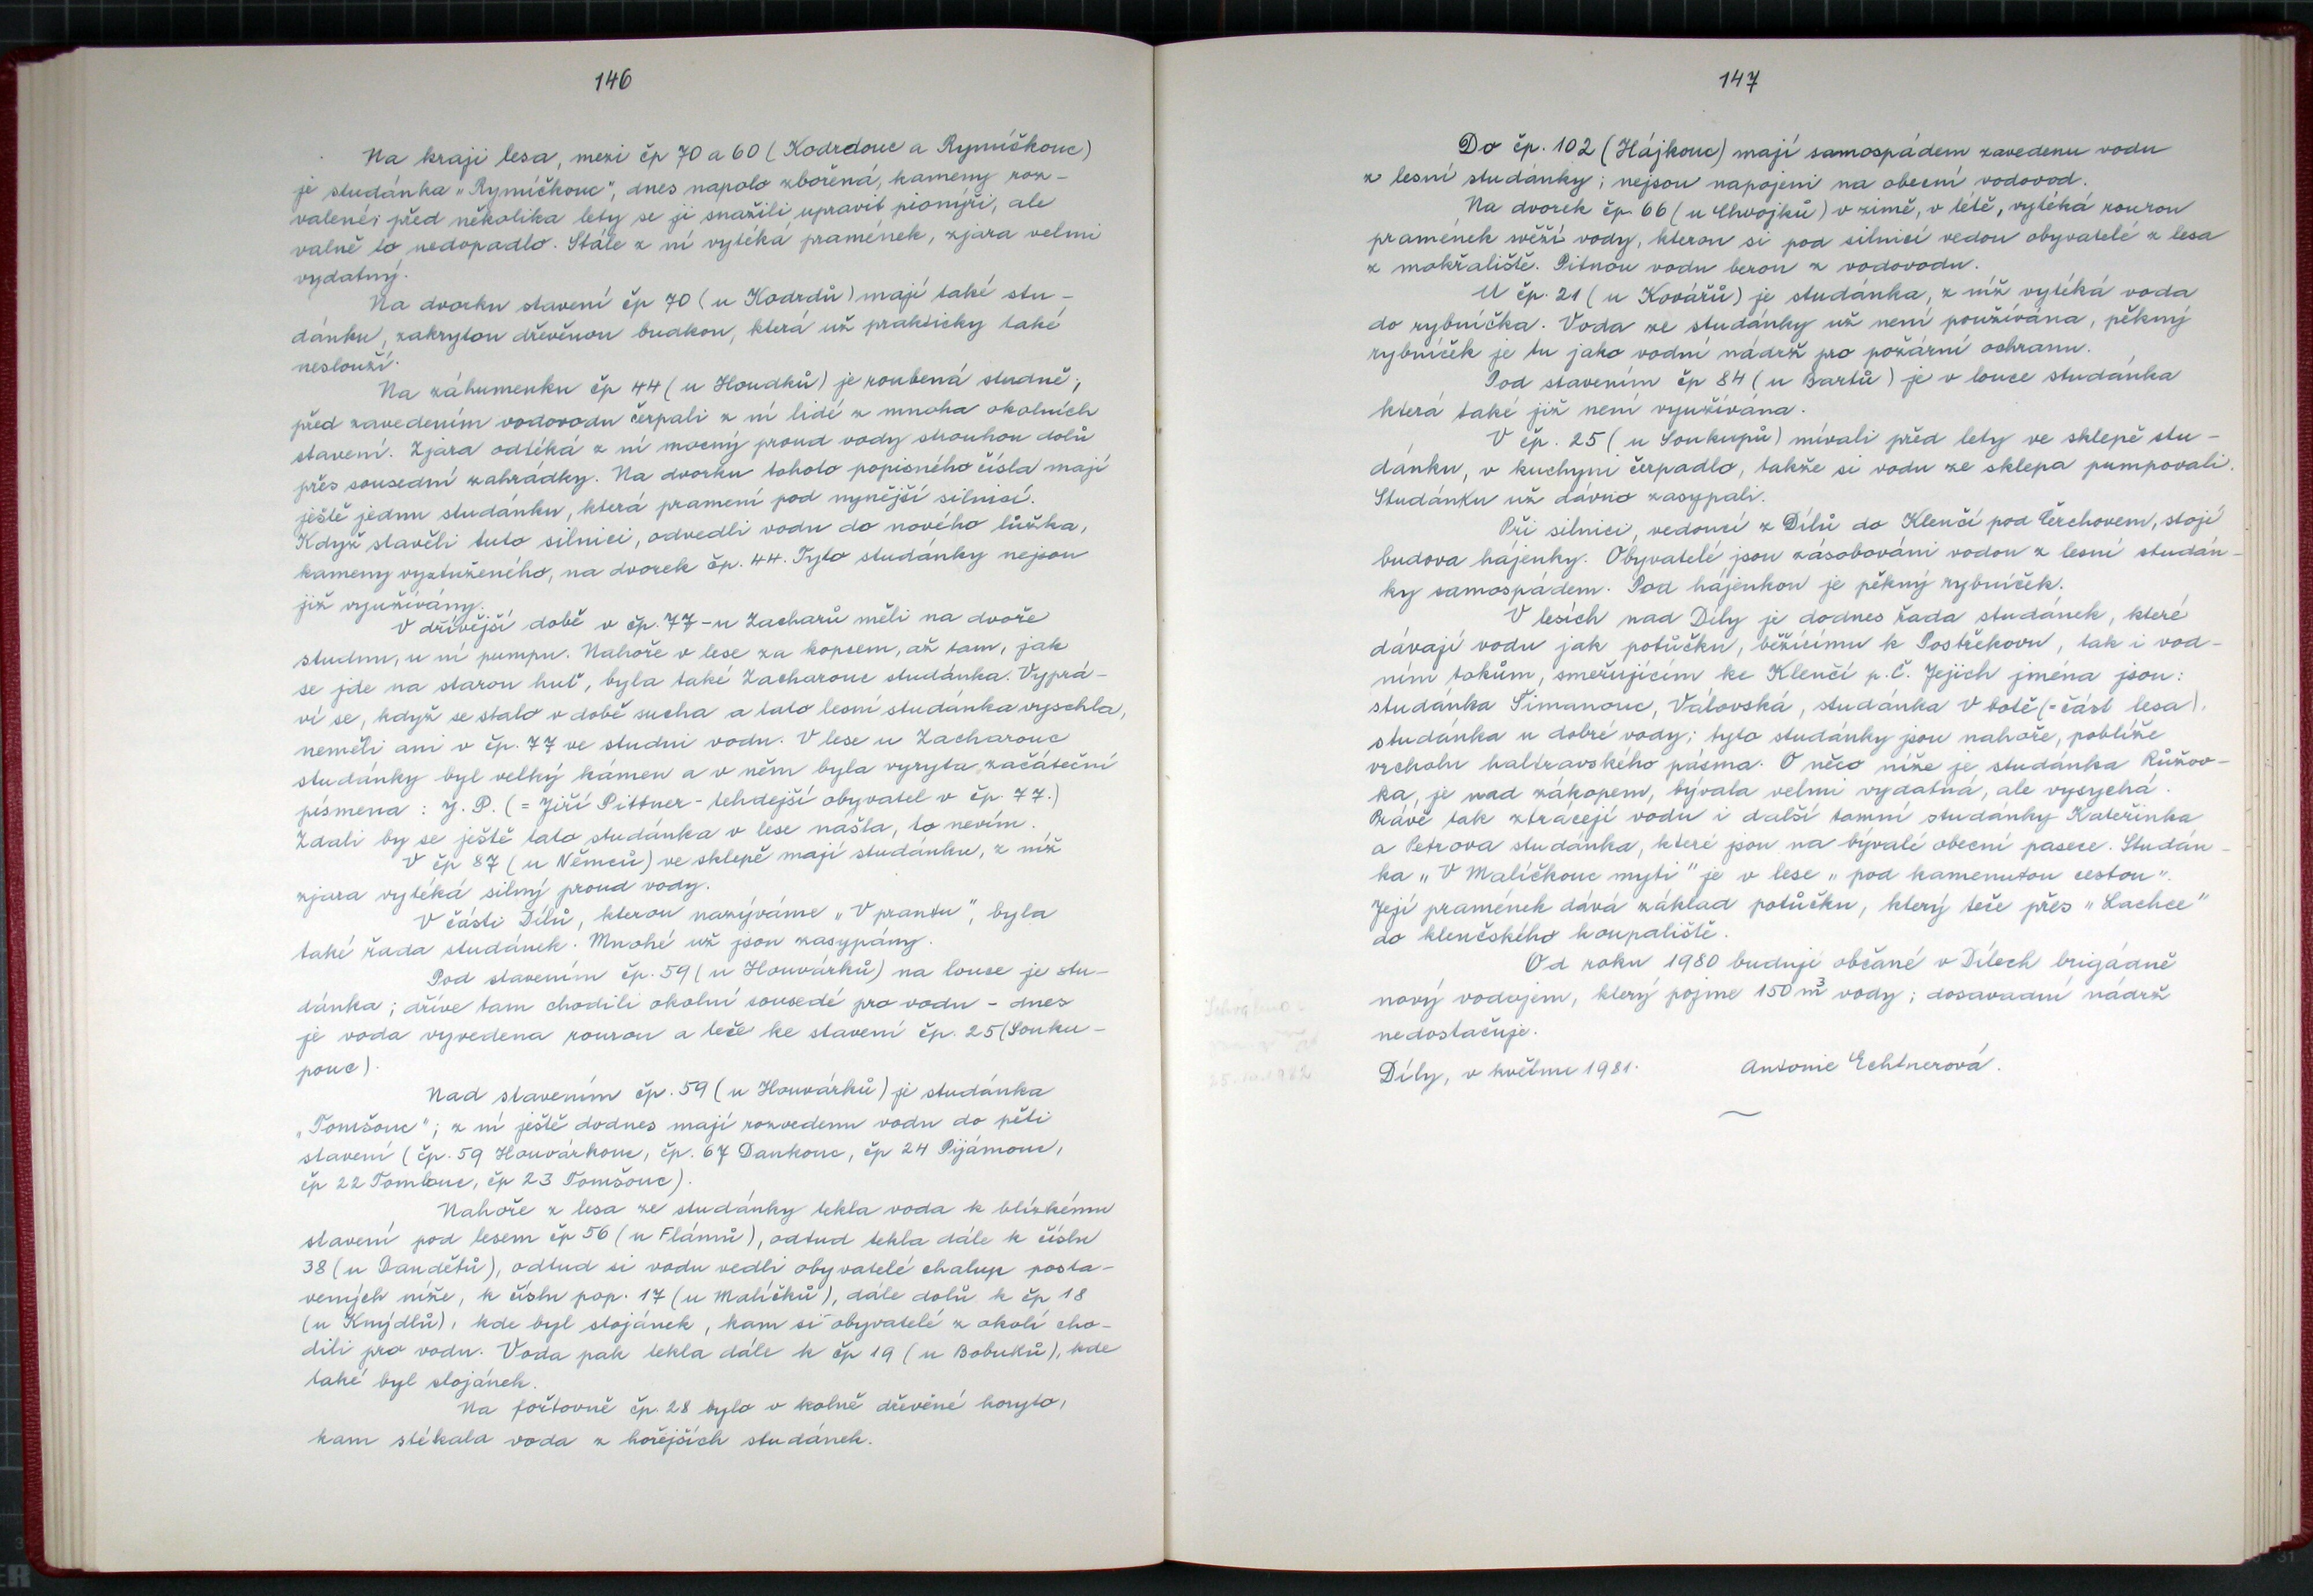 146
Na kraji lesa, mezi čp 70 a 60 (Kodrdouc a Rymíčkouc)
je studánka "Rymíčkouc", dnes napolo zbořená, kameny roz-
valené; před několika lety se ji snažili upravit pionýři, ale
valně to nedopadlo. Stále z ní vytéká pramének, zjara velmi
vydatný.
Na dvorku stavení čp 70 (u Kodrdů) mají také stu-
dánku, zakrytou dřevěnou budkou, která už prakticky také
neslouží.
Na záhumenku čp 44 (u Houdků) je roubená studně;
před zavedením vodovodu čerpali z ní lidé z mnoha okolních
stavení. Zjara odtéká z ní mocný proud vody strouhou dolů
přes sousední zahrádky. Na dvorku tohoto popisného čísla mají
ještě jednu studánku, která pramení pod nynější silnicí.
Když stavěli tuto silnici, odvedli vodu do nového lůžka,
kameny vyztuženého, na dvorek čp. 44. Tyto studánky nejsou
již využívány.
V dřívější době v čp. 77 - u Zacharů měli na dvoře
studnu, u ní pumpu. Nahoře v lese za kopcem, až tam, jak
se jde na starou huť, byla také Zacharouc studánka. Vyprá-
ví se, když se stalo v době sucha a tato lesní studánka vyschla,
neměli ani v čp. 77 ve studni vodu. V lese u Zacharouc
studánky byl velký kámen a v něm byla vyryta začáteční
písmena : J. P. (= Jiří Pittner - tehdejší obyvatel v čp. 77.)
Zdali by se ještě tato studánka v lese našla, to nevím.
V čp 87 (u Němců) ve sklepě mají studánku, z níž
zjara vytéká silný proud vody.
V části Dílů, kterou nazýváme "V prantu", byla
také řada studánek. Mnohé už jsou zasypány.
Pod stavením čp. 59 (u Houvárků) na louce je stu-
dánka; dříve tam chodili okolní sousedé pro vodu - dnes
je voda vyvedena rourou a teče ke stavení čp. 25 (Souku-
pouc).
Nad stavením čp. 59 (u Houvárků) je studánka
"Tomšouc"; z ní ještě dodnes mají rozvedenu vodu do pěti
stavení (čp. 59 Houvárkouc, čp. 67 Dankouc, čp 24 Pijámouc,
čp 22 Tomlouc, čp 23 Tomšouc).
Nahoře z lesa ze studánky tekla voda k blízkému
stavení pod lesem čp 56 (u Flámů), odtud tekla dále k číslu
38 (u Dandětů), odtud si vodu vedli obyvatelé chalup posta-
vených níže, k číslu pop. 17 (u Malíčků), dále dolů k čp 18
(u Knýdlů), kde byl stojánek, kam si obyvatelé z okolí cho-
dili pro vodu. Voda pak tekla dále k čp 19 (u Bobuků), kde
také byl stojánek.
Na foštovně čp. 28 bylo v kolně dřevěné koryto,
kam stékala voda z hořejších studánek.
147
Do čp. 102 (Hájkouc) mají samospádem zavedenu vodu
z lesní studánky; nejsou napojeni na obecní vodovod.
Na dvorek čp. 66 (u Chvojků) v zimě, v létě, vytéká rourou
pramének svěží vody, kterou si pod silnicí vedou obyvatelé z lesa
z mokřaliště. Pitnou vodu berou z vodovodu.
U čp. 21 (u Kovářů) je studánka, z níž vytéká voda
do rybníčka. Voda ze studánky už není používána, pěkný
rybníček je tu jako vodní nádrž pro požární ochranu.
Pod stavením čp 84 (u Bartů) je v louce studánka
která také již není využívána.
V čp. 25 (u Soukupů) mívali před lety ve sklepě stu-
dánku, v kuchyni čerpadlo, takže si vodu ze sklepa pumpovali.
Studánku už dávno zasypali.
Při silnici, vedoucí z Dílů do Klenčí pod Čerchovem, stojí
budova hájenky. Obyvatelé jsou zásobováni vodou z lesní studán-
ky samospádem. Pod hájenkou je pěkný rybníček.
V lesích nad Díly je dodnes řada studánek, které
dávají vodu jak potůčku, běžícímu k Postřekovu, tak i vod-
ním tokům, směřujícím ke Klenčí p. Č. Jejich jména jsou:
studánka Šimanouc, Válovská, studánka V botě (= část lesa),
studánka u dobré vody; tyto studánky jsou nahoře, poblíže
vrcholu haltravského pásma. O něco níže je studánka Růžov-
ka, je nad zákopem, bývala velmi vydatná, ale vysychá.
Právě tak ztrácejí vodu i další tamní studánky Kateřinka
a Petrova studánka, které jsou na bývalé obecní pasece. Studán-
ka "V Malíčkouc myti" je v lese "pod kamenutou cestou".
Její pramének dává základ potůčku, který teče přes "Lachce"
do klenčského koupaliště.
Od roku 1980 budují občané v Dílech brigádně
nový vodojem, který pojme 150 m³ vody; dosavadní nádrž
nedostačuje.
Díly, v květnu 1981. Antonie Echtnerová.
Schváleno
25.10.1982